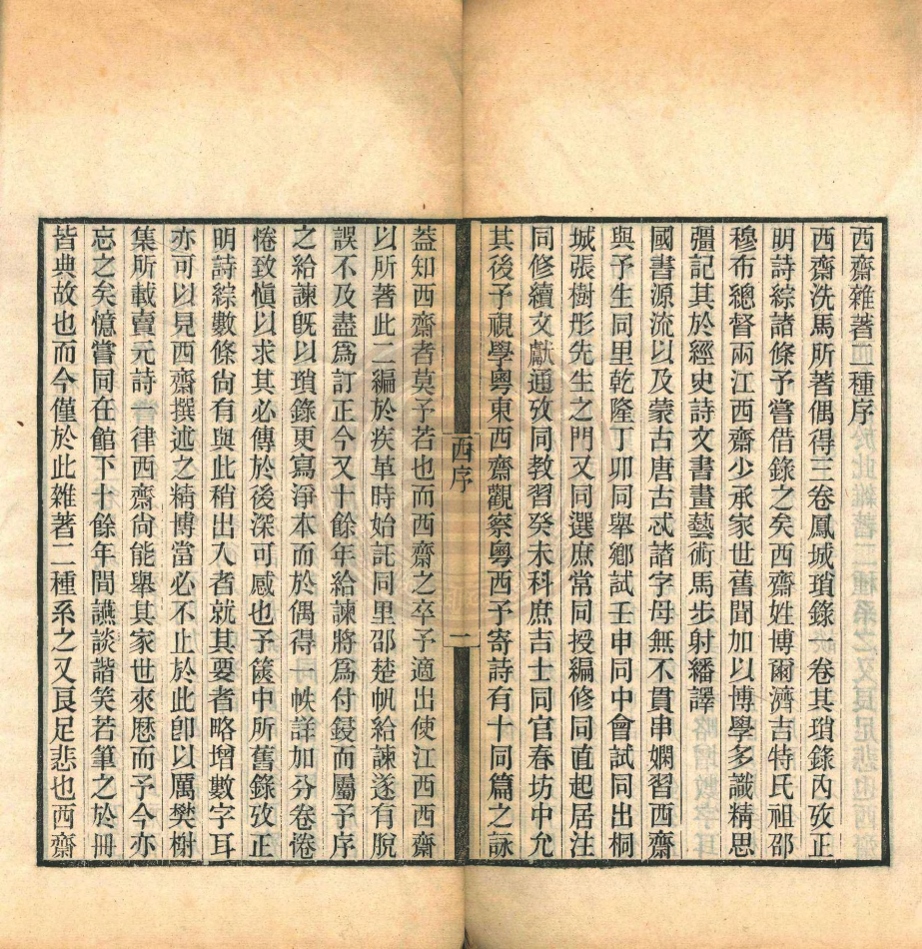 西齋雜著二種序
西齋洗馬所著偶得三卷鳳城瑣錄一卷其瑣錄內攷正
明詩綜諸條予嘗借錄之矣西齋姓博爾濟吉特氏祖邵
穆布總督兩江西齋少承家世舊聞加以博學多識精思
彊記其於經史詩文書畫藝術馬步射繙譯
國書源流以及蒙古唐古忒諸字母無不貫串嫺習西齋
與予生同里乾隆丁卯同舉鄉試壬申同中會試同出桐
城張樹彤先生之門又同選庶常同授編修同直起居注
同修續文獻通攷同教習癸未科庶吉士同官春坊中允
其後予視學粵東西齋觀察粵西予寄詩有十同篇之詠
西序
一
葢知西齋者莫予若也而西齋之卒予適出使江西西齋
以所著此二編於疾革時始託同里邵楚帆給諫遂有脫
誤不及盡爲訂正今又十餘年給諫將爲付鋟而屬予序
之給諫旣以瑣錄更寫淨本而於偶得一帙詳加分卷惓
惓致愼以求其必傳於後深可感也予篋中所舊錄攷正
明詩綜數條尙有與此稍出入者就其要者略增數字耳
亦可以見西齋撰述之精博當必不止於此卽以厲樊榭
集所載賣元詩一律西齋尙能舉其家世來歷而予今亦
忘之矣憶嘗同在館下十餘年間讌談諧笑若筆之於冊
皆典故也而今僅於此雜著二種系之又良足悲也西齋